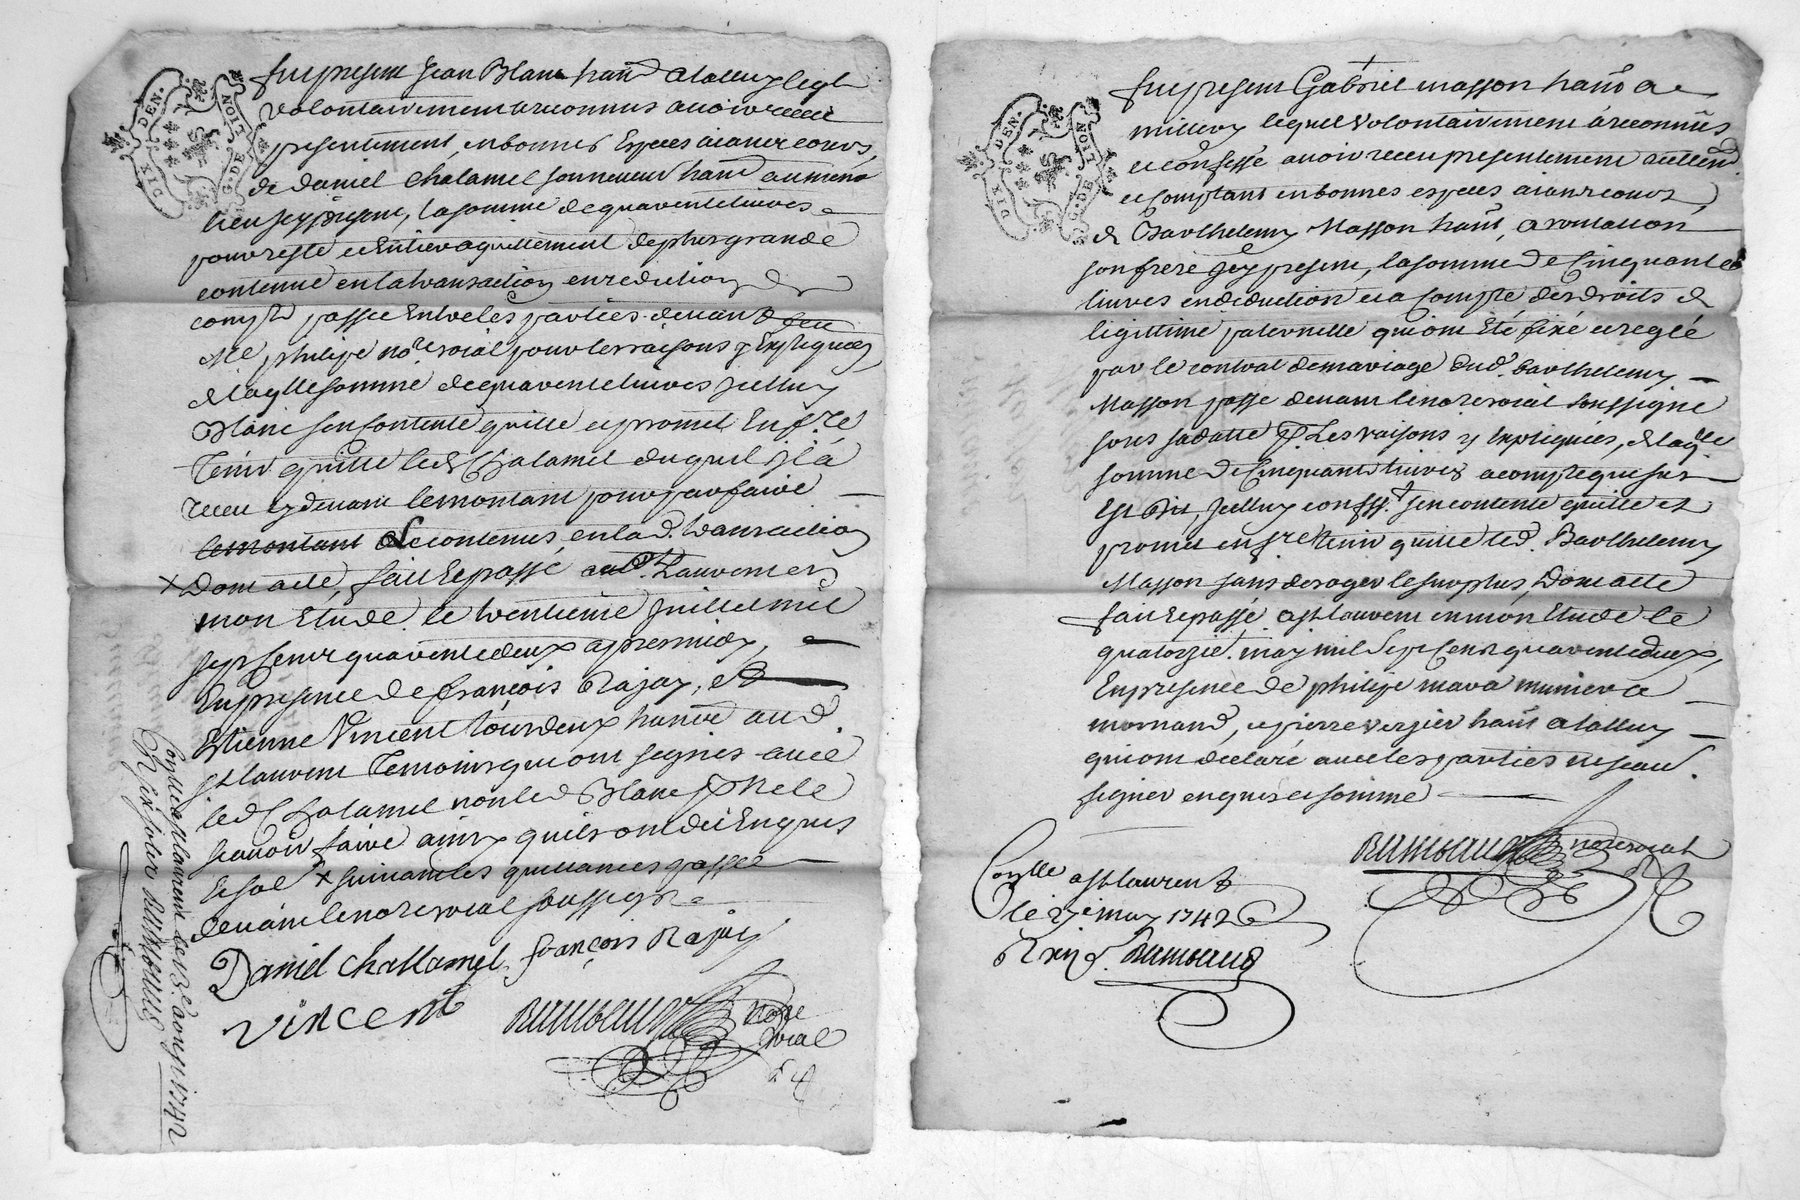 DIX DEN.
G. DE LION
fut present Jean Blanc habt a talluy lequel
volontairement a reconnus avoir receu
presentement, en bonnes Especes aiant cours,
de daniel Chatamel son neveu habt au meme
lieu icy present, la somme de quarente livres
pour reste et entier aquittement de plus grande
contenue en la transaction en reduction de
compte passée Entre les parties devant feu
Me philipe nore roial pour les raisons y Expliquées
de laqlle somme de quarente livres jcelluy
Blanc sen contente quitte et promet En fre
Tenir quitte led Chatamel duquel il a
receu cy devant le montant pour parfaire
le montant de contenus, en lad. transaction
x Dont acte, fait et passé aud. st Laurent en
mon Etude le trentieme juillet mil
sept cent quarente deux apresmidy,
En presence de françois Rajay, et
Etienne Vincent tourdeux habts aud.
st laurent Temoins qui ont signés avec
led Chatamel non led Blanc pr ne le
scavoir faire ainsy quils ont dit Enquis
et so[mm]é x suivant les quittances passée
devant le nore roial soussigné
Daniel chattamel françois Rajay
Vincent
Rambaud nore
roial
Conlle a st laurent le 13e aoust 1742
R six sols Rambaud
DIX DEN.
G. DE LION
fut present Gabriel masson habt a
millery lequel volontairement a reconnus
et confessé avoir receu presentement reellemt
et comptant en bonnes especes aiant cours,
de Barthelemy Masson habt, a rontalon
son frere jcy present, la somme de Cinquante
livres en deduction et a Compte des droits de
legittime paternelle qui ont Eté fixé et reglé
par le contrat de mariage dud. barthelemy
Masson passe devant le nore roial soussigné
sous sa datte pr Les raisons y Expliquées, de laqlle
somme de Cinquante livres a compte que sus
Est Dit, jcelluy confesst sen contente quitte et
promet en fre tenir quitte led. Barthelemy
Masson sans deroger le surplus, Dont acte
fait et passé a st laurent en mon Etude le
quatorzie. may mil sept cent quarente deux,
En presence de philipe mara munier a
mornand, et pierre verzier habt a talluy
qui ont declaré avec les parties ne scav.
signer enquis et sommé
Rambaud nore roial
Conlle a st laurent
le 27e may 1742
R xij s. Rambaud